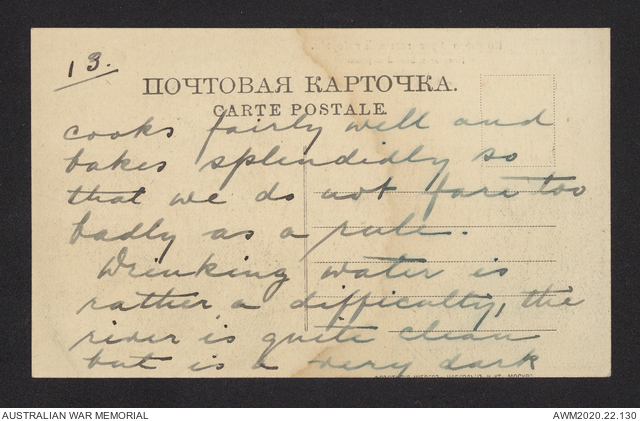 13.
ПОЧТОВАЯ КАРТОЧКА.
CARTE POSTALE.
cooks fairly well and
bakes splendidly so
that we do not fare too
badly as a rule.
Drinking water is
rather a difficulty, the
river is quite clean
but is a very dark
AUSTRALIAN WAR MEMORIAL
AWM2020.22.130